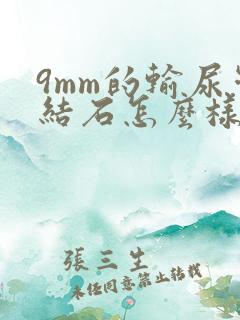 9mm的輸尿
結石怎麼樣
張三生
未經同意禁止轉載